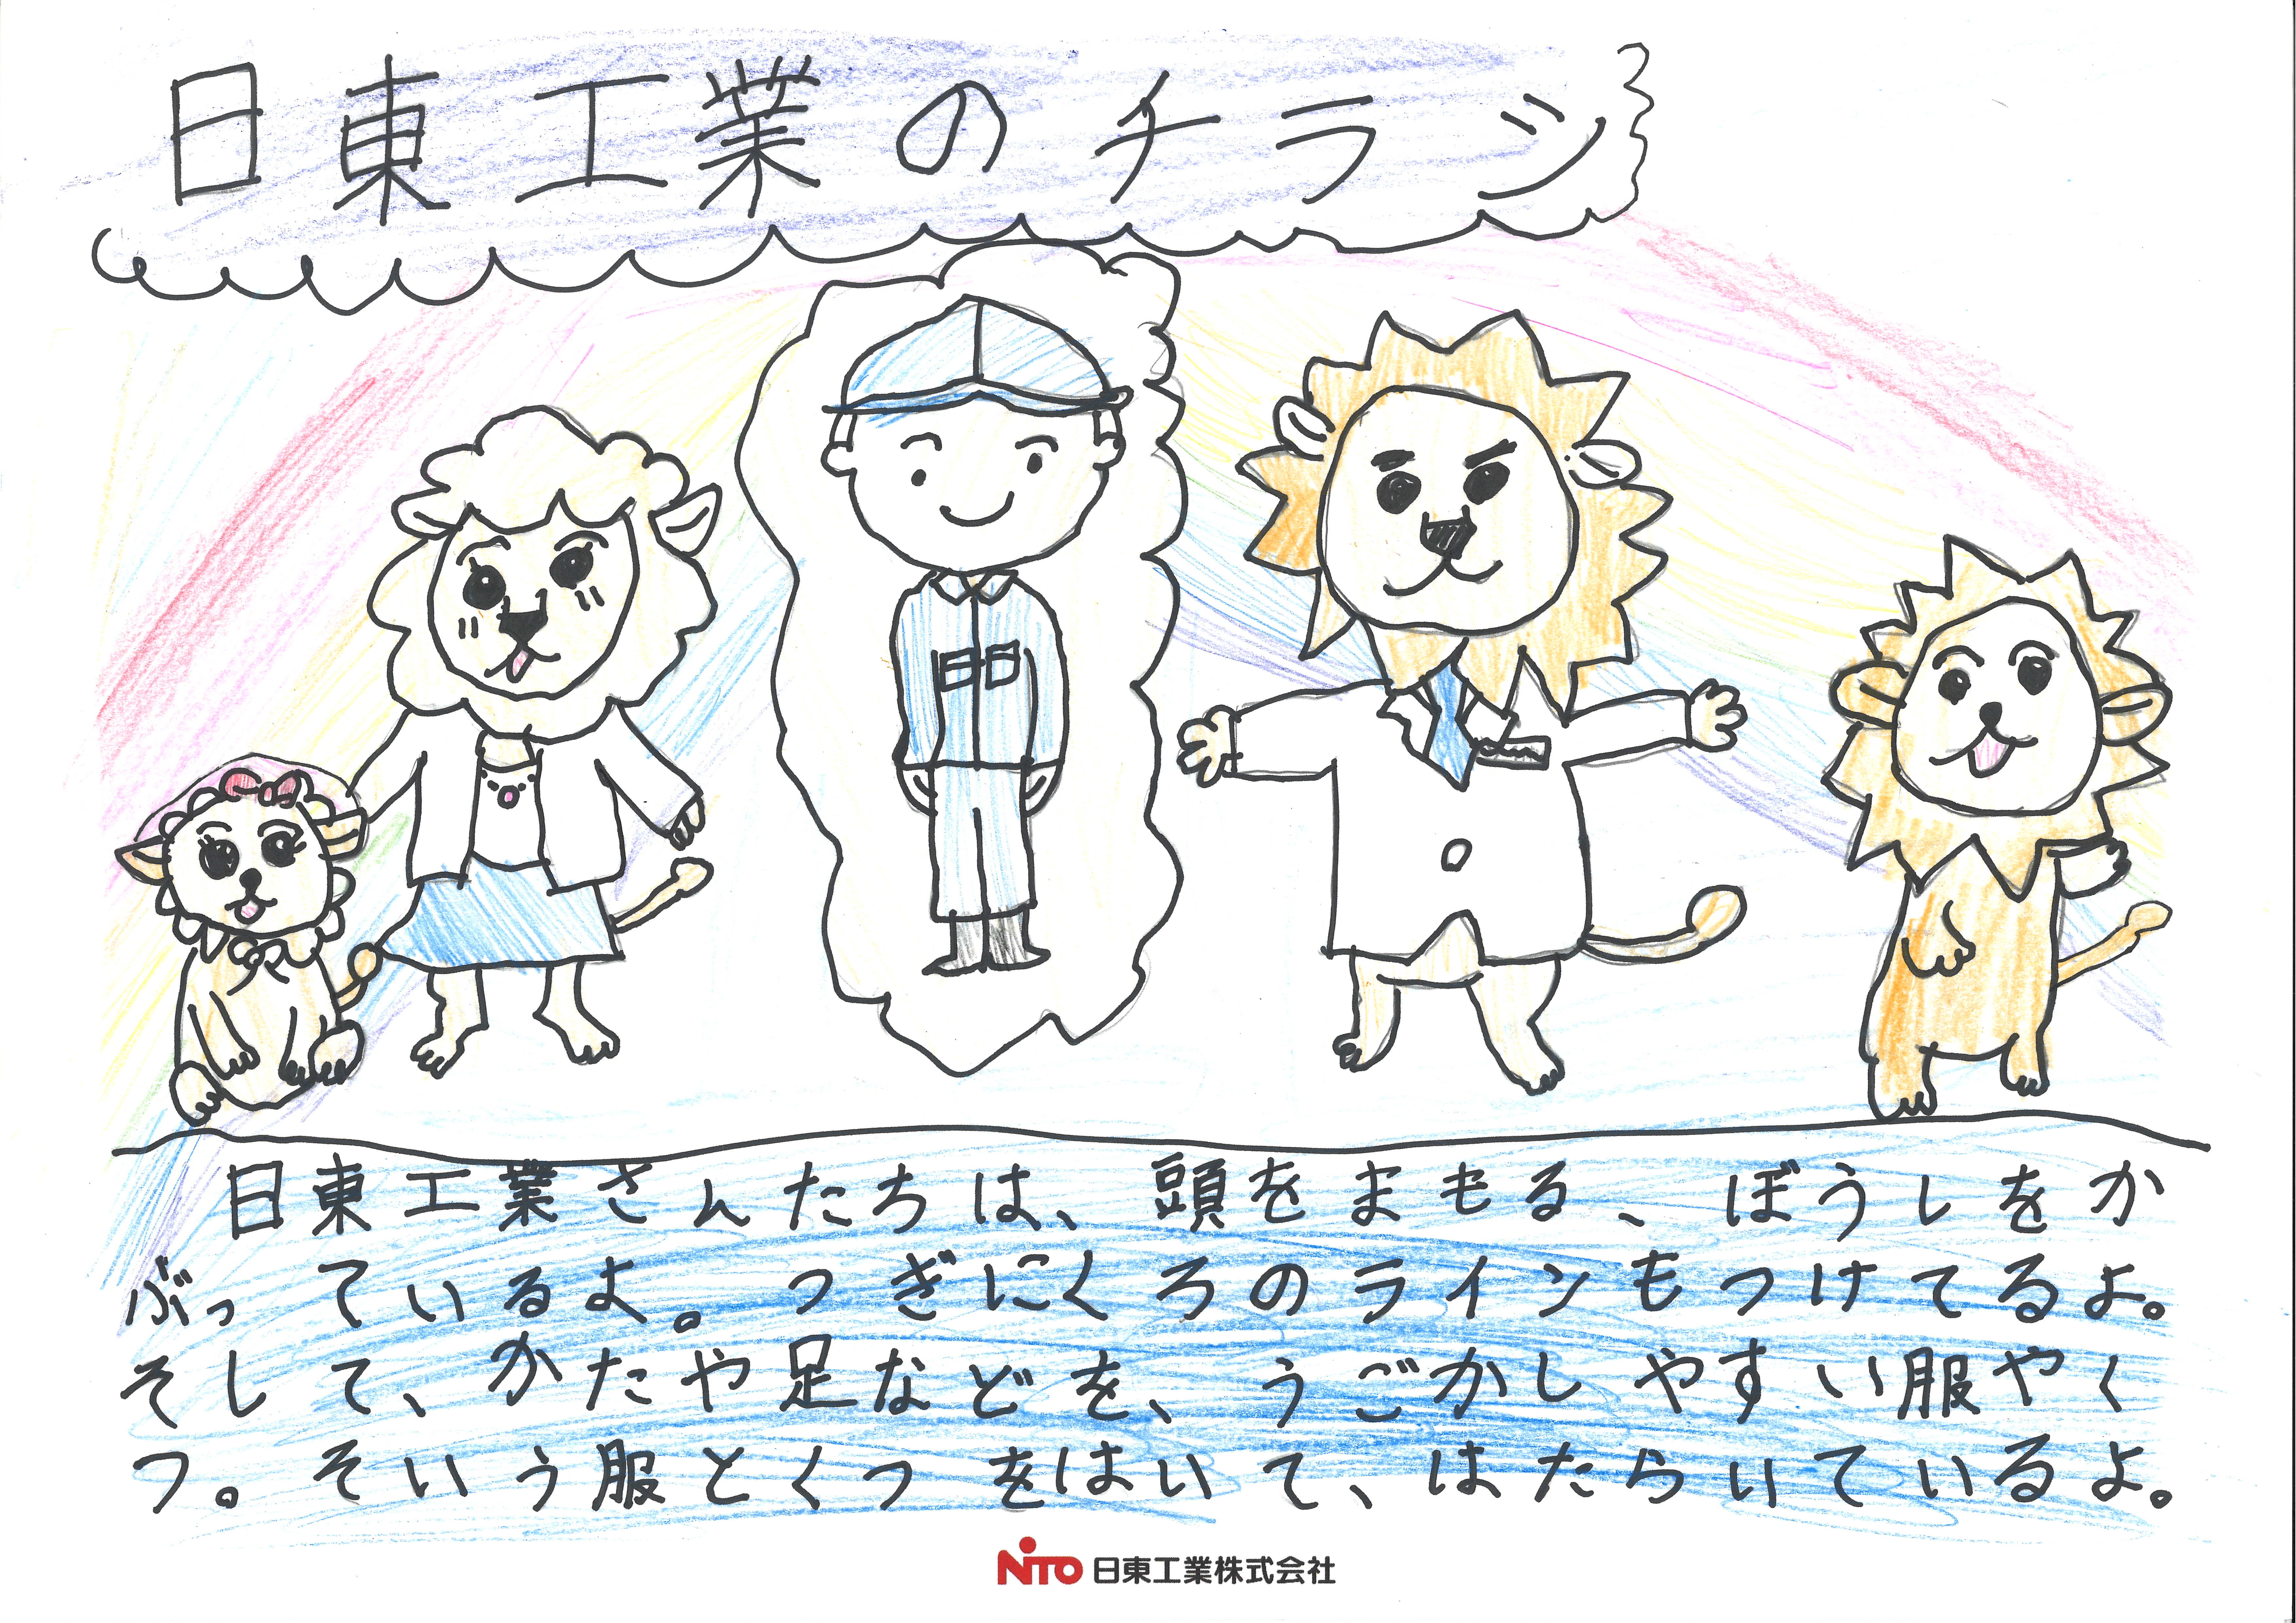 日東工業のチラシ
日東工業さんたちは、頭をまもる、ぼうしをか
ぶっているよ。つぎにくろのラインもつけてるよ。
そして、かたや足などを、うごかしやすい服やく
つ。そいう服とくつをはいて、はたらいているよ。
NITO 日東工業株式会社